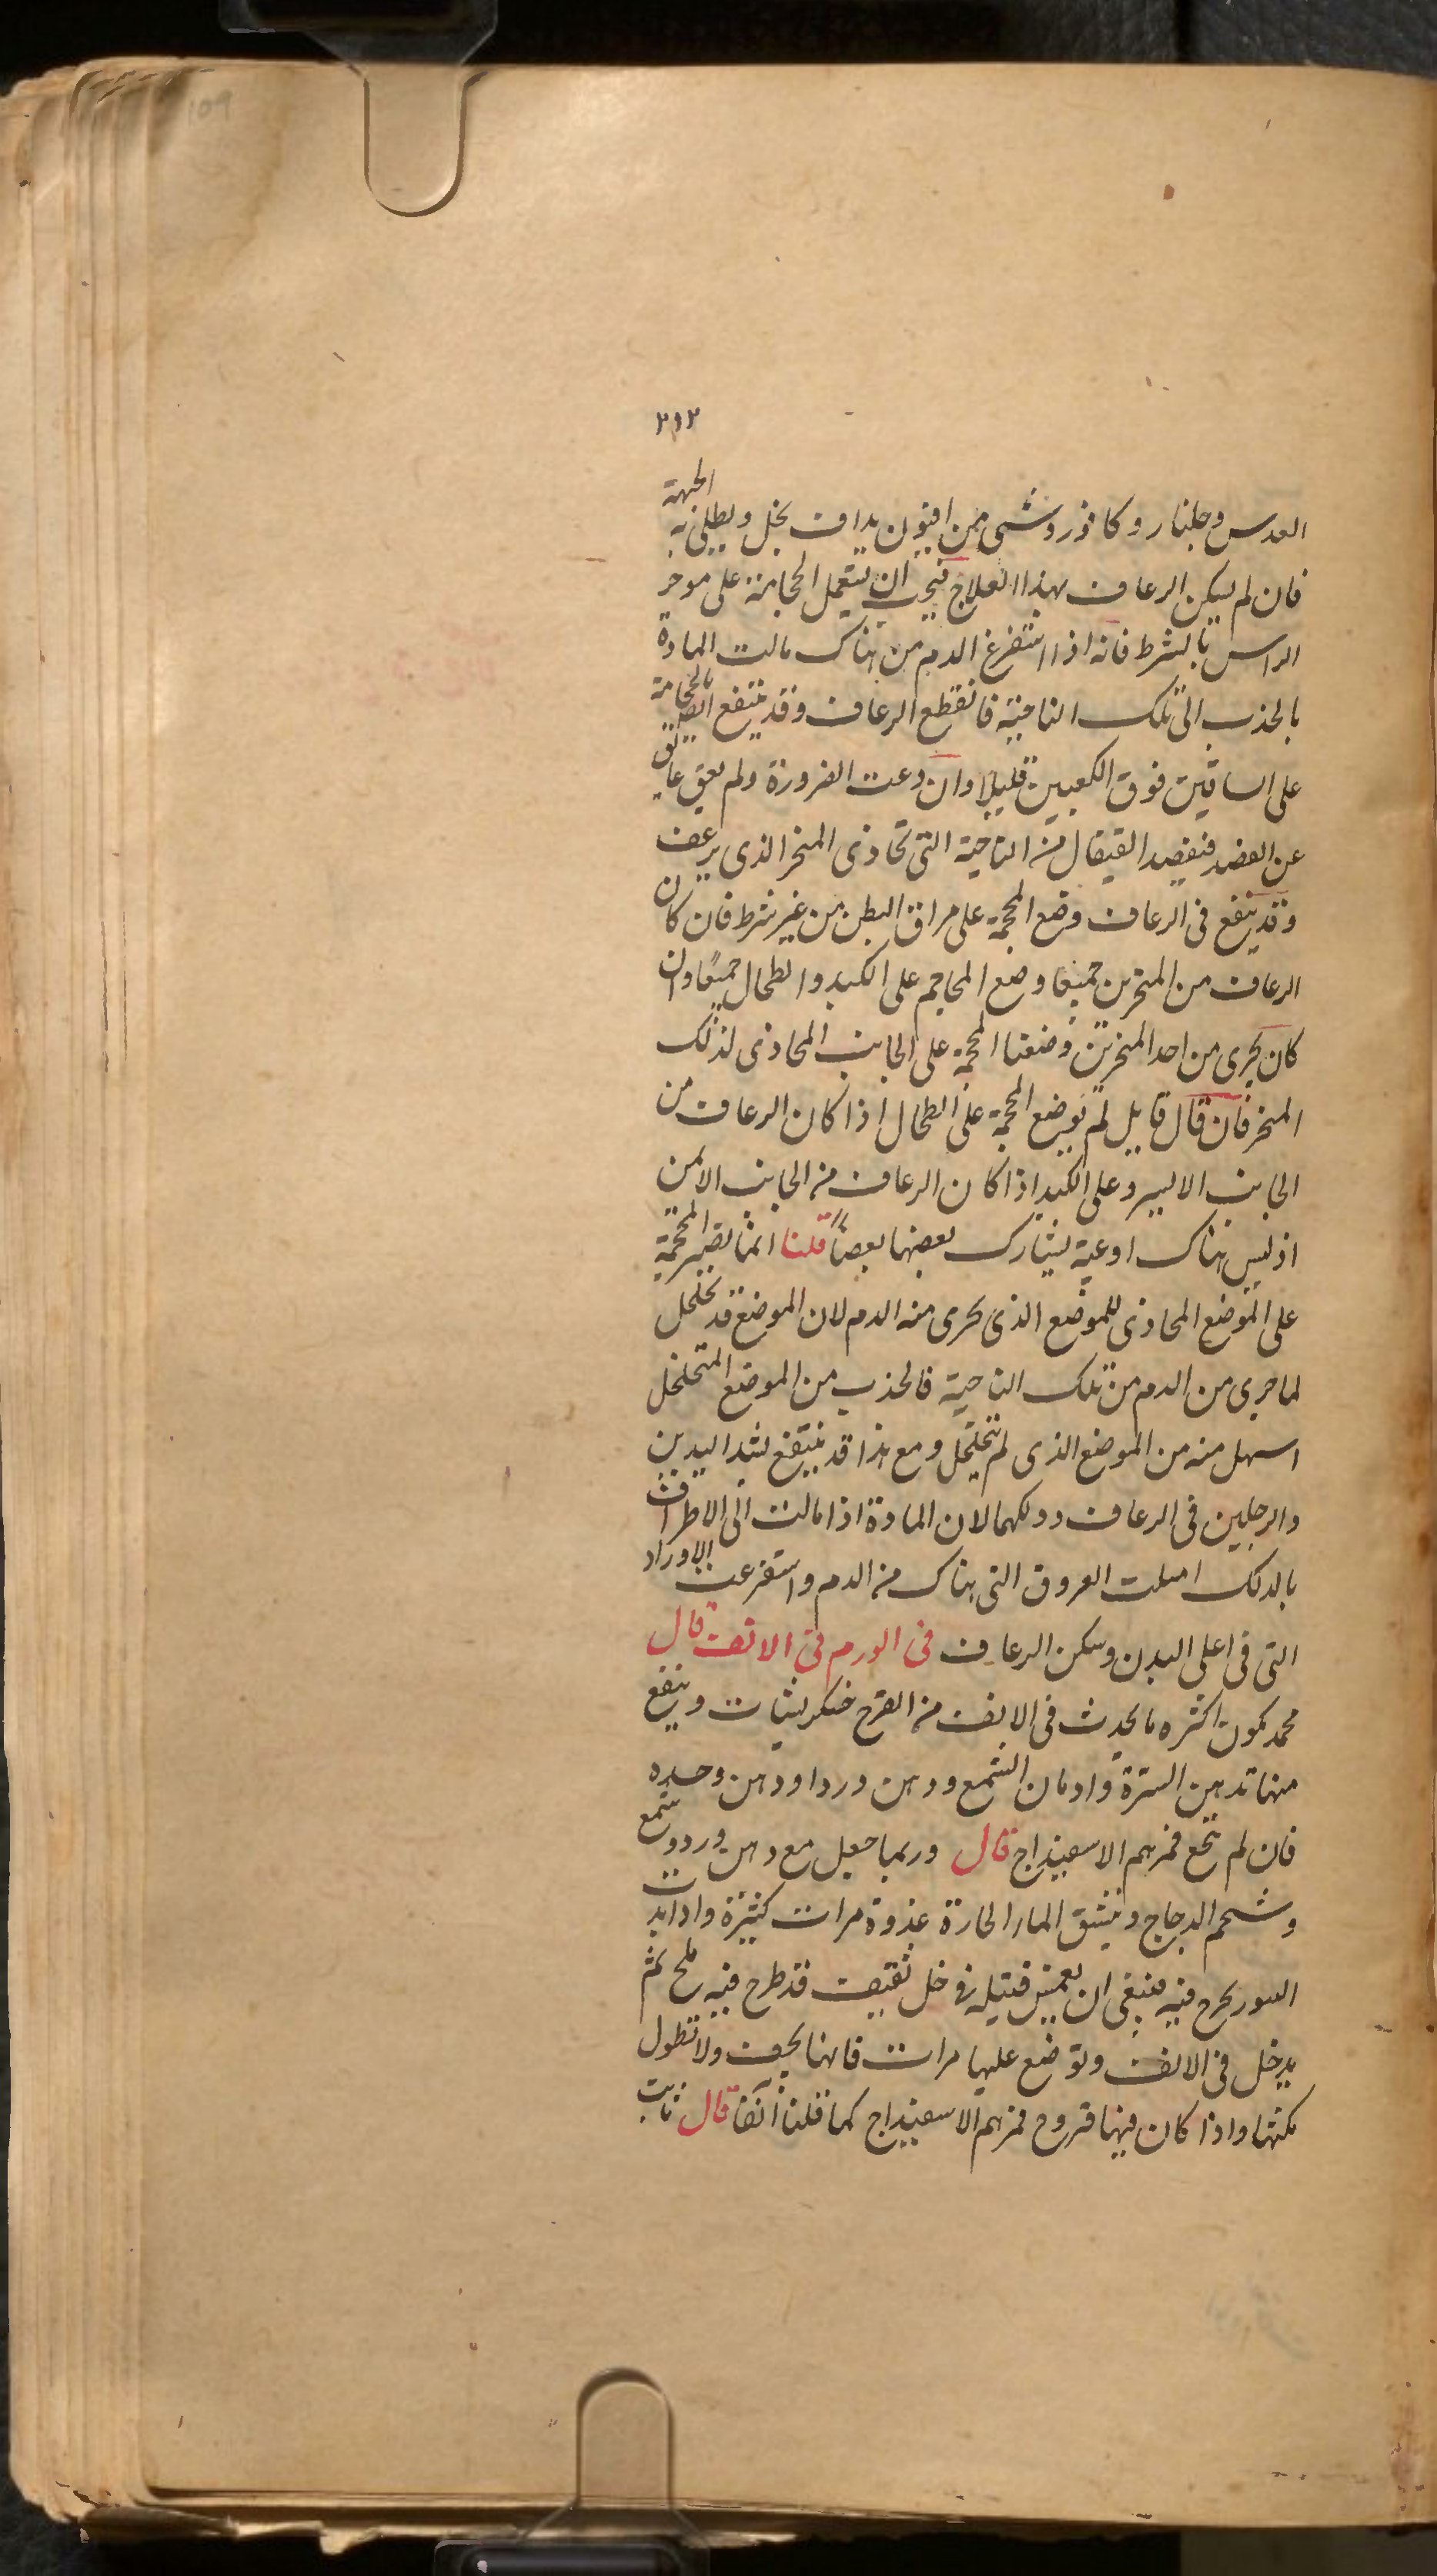 109
٢١٢
العدس وجلنار وكافور وشى من افيون يداف بخل ويطلى به الجبهة
فان لم يسكن الرعاف بهذا العلاج فيجب ان يستعمل الحجامة على موخر
الراس بالشرط فانه اذا استفرغ الدم من هناك مالت المادة
بالجذب الى تلك الناحية فانقطع الرعاف وقد ينتفع ايضا بالحجامة
على الساقين فوق الكعبين قليلا وان دعت الضرورة ولم يعق عايق
عن الفصد فيفصد القيفال من الناحية التى تحاذى المنخر الذى يرعف
وقد ينفع فى الرعاف وضع المحجمة على مراق البطن من غير شرط فان كان
الرعاف من المنخرين جميعا وضع المحاجم على الكبد والطحال جميعا وان
كان يجرى من احد المنخرين وضعنا المحجمة على الجانب المحاذى لذلك
المنخر فان قال قايل لم توضع المحجمة على الطحال اذا كان الرعاف من
الجانب الايسر وعلى الكبد اذا كان الرعاف من الجانب الايمن
اذ ليس هناك اوعية يشارك بعضها بعضا قلنا انما يصير المحجمة
على الموضع المحاذى للموضع الذى يجرى منه الدم لان الموضع قد تخلخل
لما جرى من الدم من تلك الناحية فالجذب من الموضع المتخلخل
اسهل منه من الموضع الذى لم يتخلخل ومع هذا قد ينتفع بشد اليدين
والرجلين فى الرعاف ودلكهما لان المادة اذا مالت الى الاطراف
بالدلك امتلت العروق التى هناك من الدم واستفرغت الاوراد
التى فى اعلى البدن وسكن الرعاف فى الورم فى الانف قال
محمد يكون اكثره ما يحدث فى الانف من القرح خشكريشات وينفع
منها تدهين السرة وادمان الشمع ودهن ورد او دهن وحده
فان لم ينجع فمرهم الاسفيداج قال وربما جعل مع دهن ورد وشمع
وشحم الدجاج وينشق الماء الحارة غدوة مرات كثيرة واذا بدت
البثور يخرج فيه فينبغى ان يغمس فتيلة فى خل ثقيف قد طرح فيه ملح ثم
يدخل فى الانف وتوضع عليها مرات فانها يجف ولا تطول
مكثها واذا كان فيها قروح فمرهم الاسفيداج كما قلنا آنفا قال ثابت